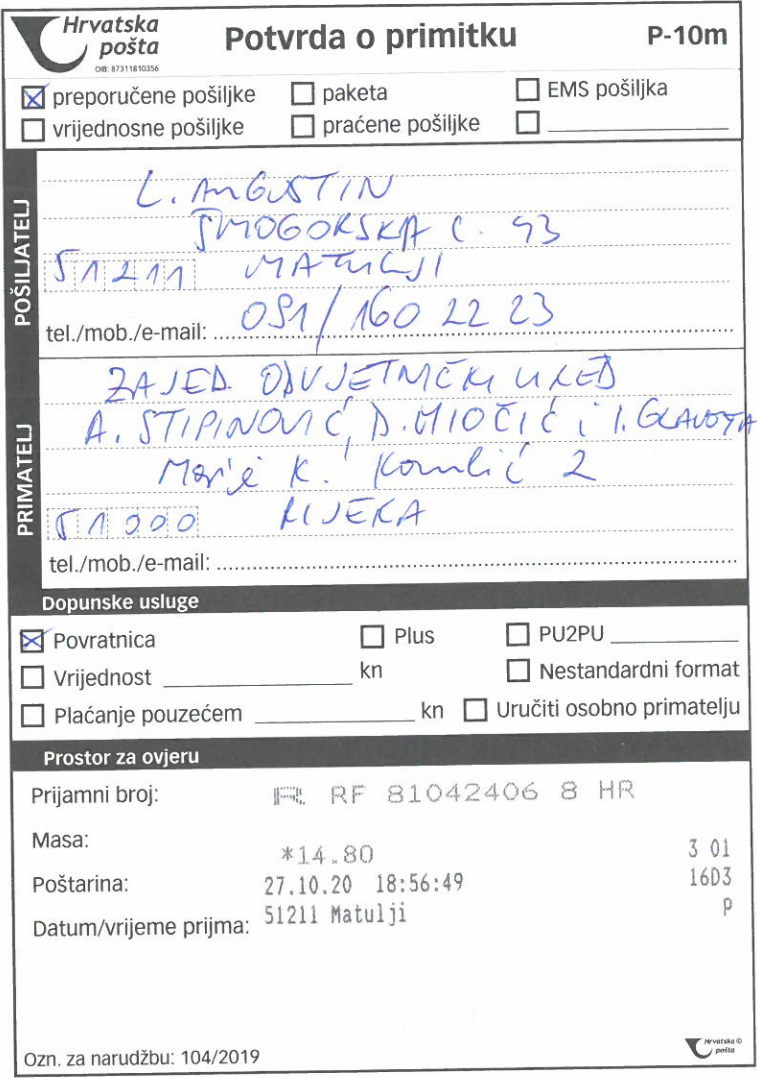 Hrvatska pošta
OIB: 87311810356
Potvrda o primitku
P-10m
preporučene pošiljke
paketa
EMS pošiljka
vrijednosne pošiljke
praćene pošiljke
POŠILJATELJ
L. AUGUSTIN
ŠMOGORSKA C. 43
51211 MATULJI
tel./mob./e-mail: 051/160 22 23
PRIMATELJ
ZAJED. ODVJETNIČKI URED
A. STIPINOVIĆ, D. MIOČIĆ i I. GLAVOTA
K. 2
51000 RIJEKA
tel./mob./e-mail:
Dopunske usluge
Povratnica
Plus
PU2PU
Vrijednost kn
Nestandardni format
Plaćanje pouzećem kn
Uručiti osobno primatelju
Prostor za ovjeru
Prijamni broj: R RF 81042406 8 HR
Masa:
*14.80 3 01
Poštarina: 27.10.20 18:56:49 16D3
Datum/vrijeme prijma: 51211 Matulji P
Ozn. za narudžbu: 104/2019
Hrvatska pošta ©